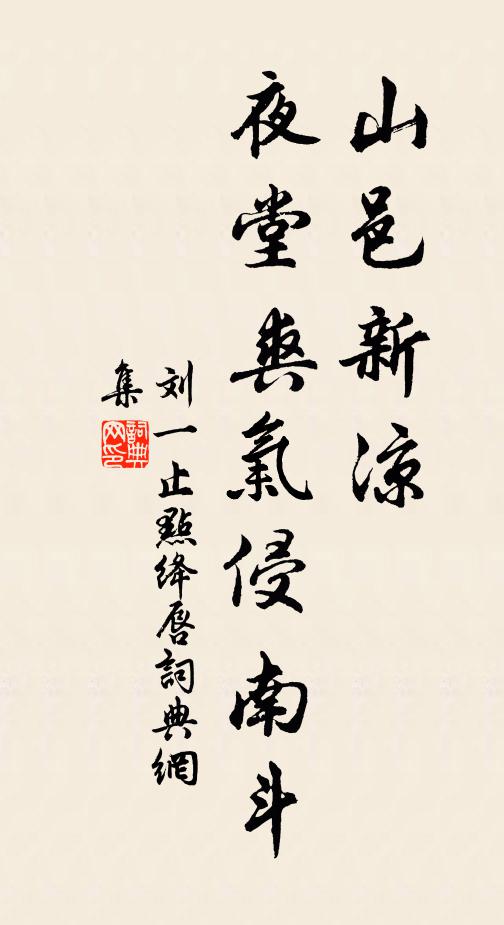 山邑新凉
夜堂爽氣侵南斗
刘一止點绛唇詞典網
集
詞典
网印